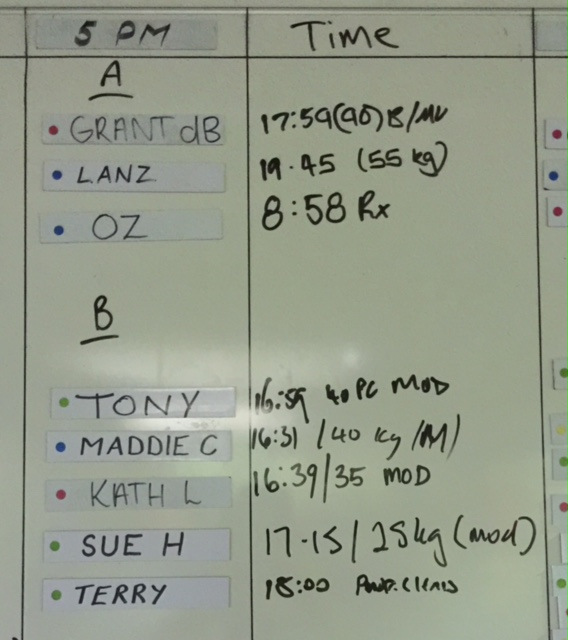 5 PM Time
A
GRANT dB 17:59(90)B/MU
LANZ 19.45 (55 kg)
OZ 8:58 Rx
B
TONY 16:59 40 PC MOD
MADDIE C 16:31 /40 kg /M)
KATH L 16:39/35 MOD
SUE H 17.15 / 25kg (mod)
TERRY 18:00